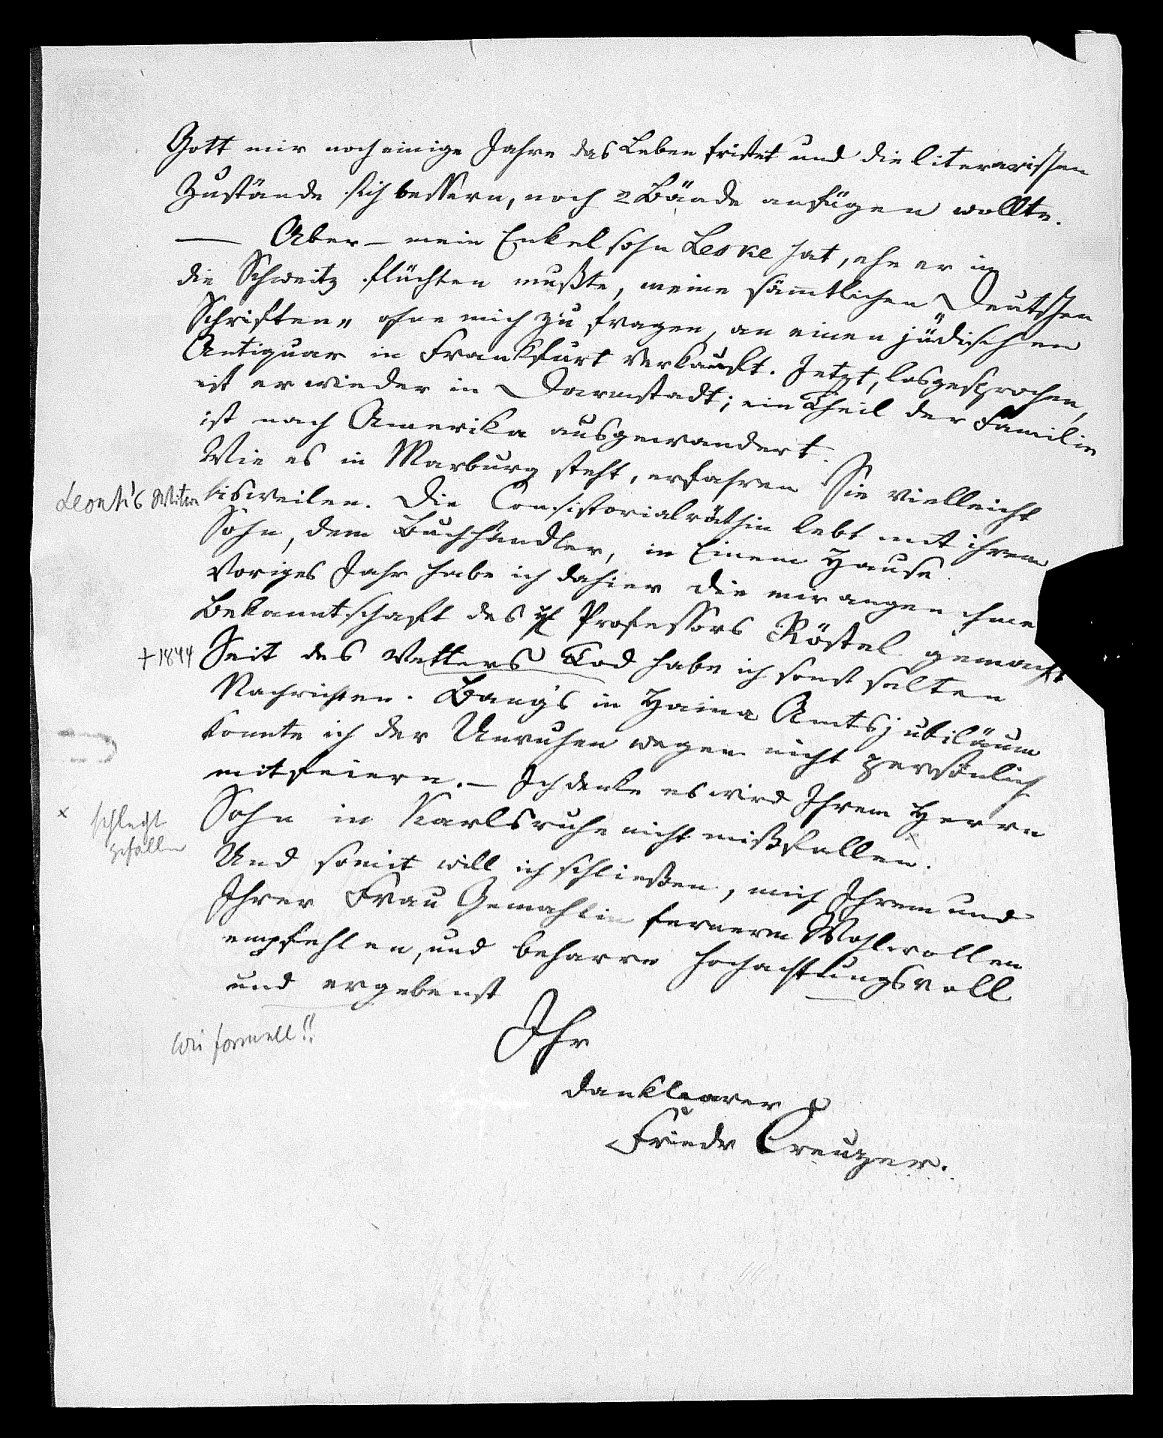 Gott mir noch einige Jahre das Leben fristet und die literarischen
Zustände sich bessern, noch 2 Bände anfügen wollte.
— Aber – mein Enkelsohn Leske hat, ehe er in
die Schweitz flüchten mußte, meine sämmtlichen „Deutschen
Schriften„ ohne mich zu fragen, an einen jüdischen
Antiquar in Frankfurt verkauft. Jetzt, losgesprochen,
ist er wieder in Darmstadt; ein Theil der Familie
ist nach Amerika ausgewandert.
Wie es in Marburg steht, erfahren Sie vielleicht
bisweilen. Die Consistorialräthin lebt mit ihrem
Sohn, dem Buchhändler, in Einem Hause.
Voriges Jahr habe ich dahier die mir angenehme
Bekanntschaft des Professors Röstel gemacht
Seit des Vetters Tod habe ich sonst selten
Nachrichten. Bang's in Haina Amtsjubiläum
konnte ich der Unruhen wegen nicht persönlich
mitfeiern. – Ich denke es wird Ihrem Herrn
Sohn in Karlsruhe nicht mißfallen.
Und somit will ich schließen, mich Ihrem und
Ihrer Frau Gemahlin fernerm Wohlwollen
empfehlen, und beharre hochachtungsvoll
und ergebenst
Ihr
dankbarer
Friedr Creuzer.
Leonh's
† 1844
× schlecht
gefallen
Wie formell!!